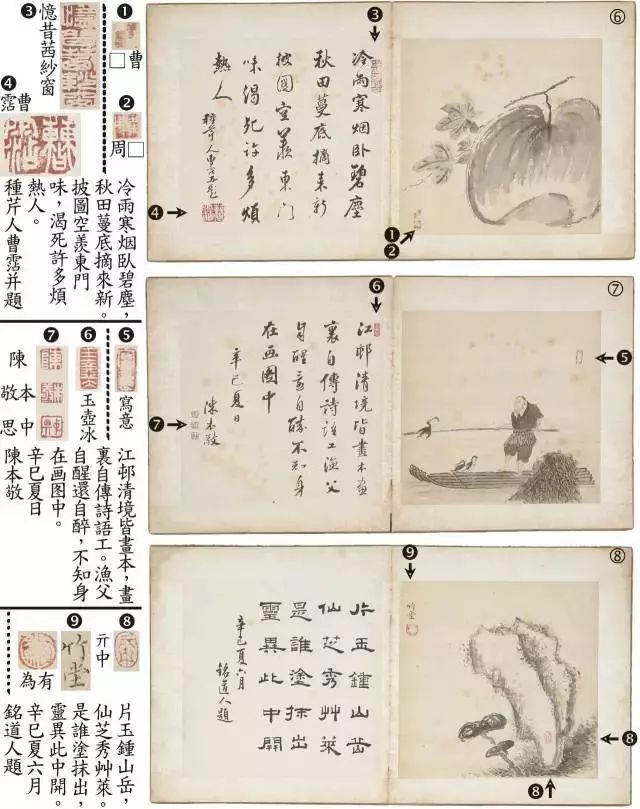 ❶
□曹
❷
周□
❸
憶昔茜紗窗
❹
曹霑
冷雨寒烟臥碧塵，
秋田蔓底摘來新。
披圖空羨東門
味，渴死許多煩
熱人。
種芹人曹霑并題
⑥
❸
冷雨寒烟臥碧塵
秋田蔓底摘来新
披圖空羨東門
味渴死許多煩
熱人
種芹人曹霑并題
❹
❶
❷
❺
寫意
❻
玉壺冰
❼
陳
本
敬
中
思
江邨清境皆畫本，畫
裏自傳詩語工。漁父
自醒還自醉，不知身
在画图中。
辛巳夏日
陳本敬
⑦
❻
江邨清境皆畫本畫
裏自傳詩語工漁父
自醒還自醉不知身
在画圖中
辛巳夏日
陳本敬
❼
❺
❽
亓中
❾
竹堂
有為
片玉鍾山岳，
仙芝秀艸萊。
是誰塗抹出，
靈異此中開。
辛巳夏六月
銘道人題
⑧
❾
竹堂
片玉鍾山岳
仙芝秀艸萊
是誰塗抹出
靈異此中開
辛巳夏六月
銘道人題
❽
❽